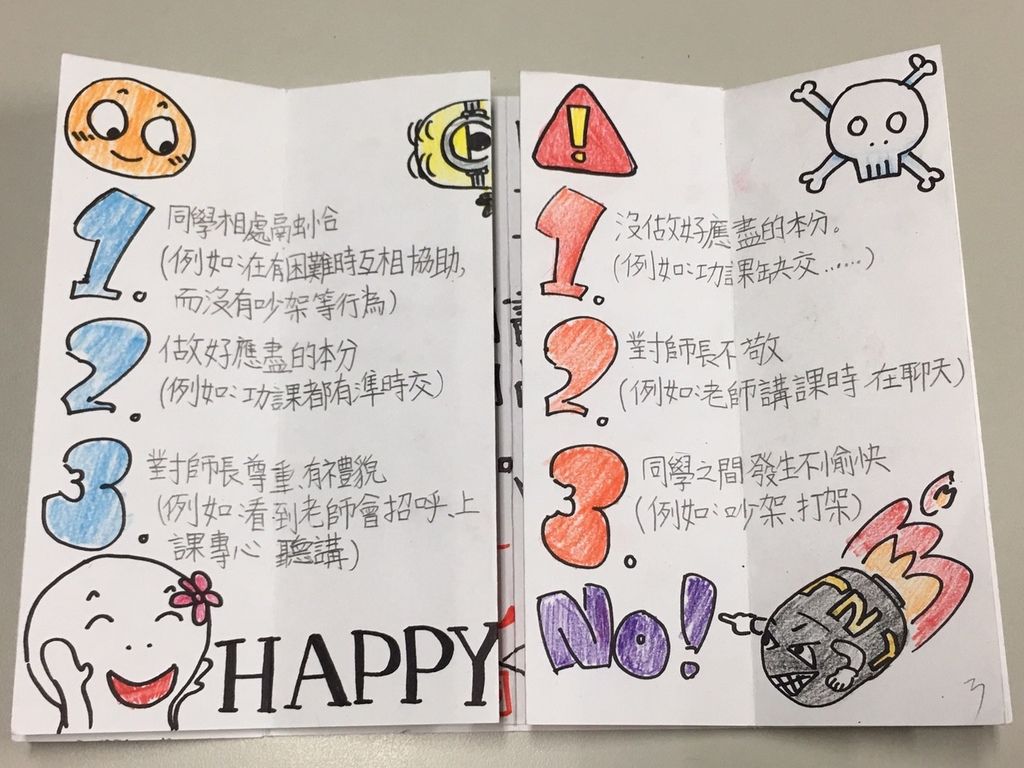 1.
同學相處融洽
(例如:在有困難時互相協助,
而沒有吵架等行為)
2.
做好應盡的本分
(例如:功課都有準時交)
3.
對師長尊重、有禮貌
(例如:看到老師會招呼、上
課專心聽講)
HAPPY
1.
沒做好應盡的本分。
(例如:功課缺交……)
2.
對師長不敬
(例如:老師講課時在聊天)
3.
同學之間發生不愉快
(例如:吵架、打架)
No!
3